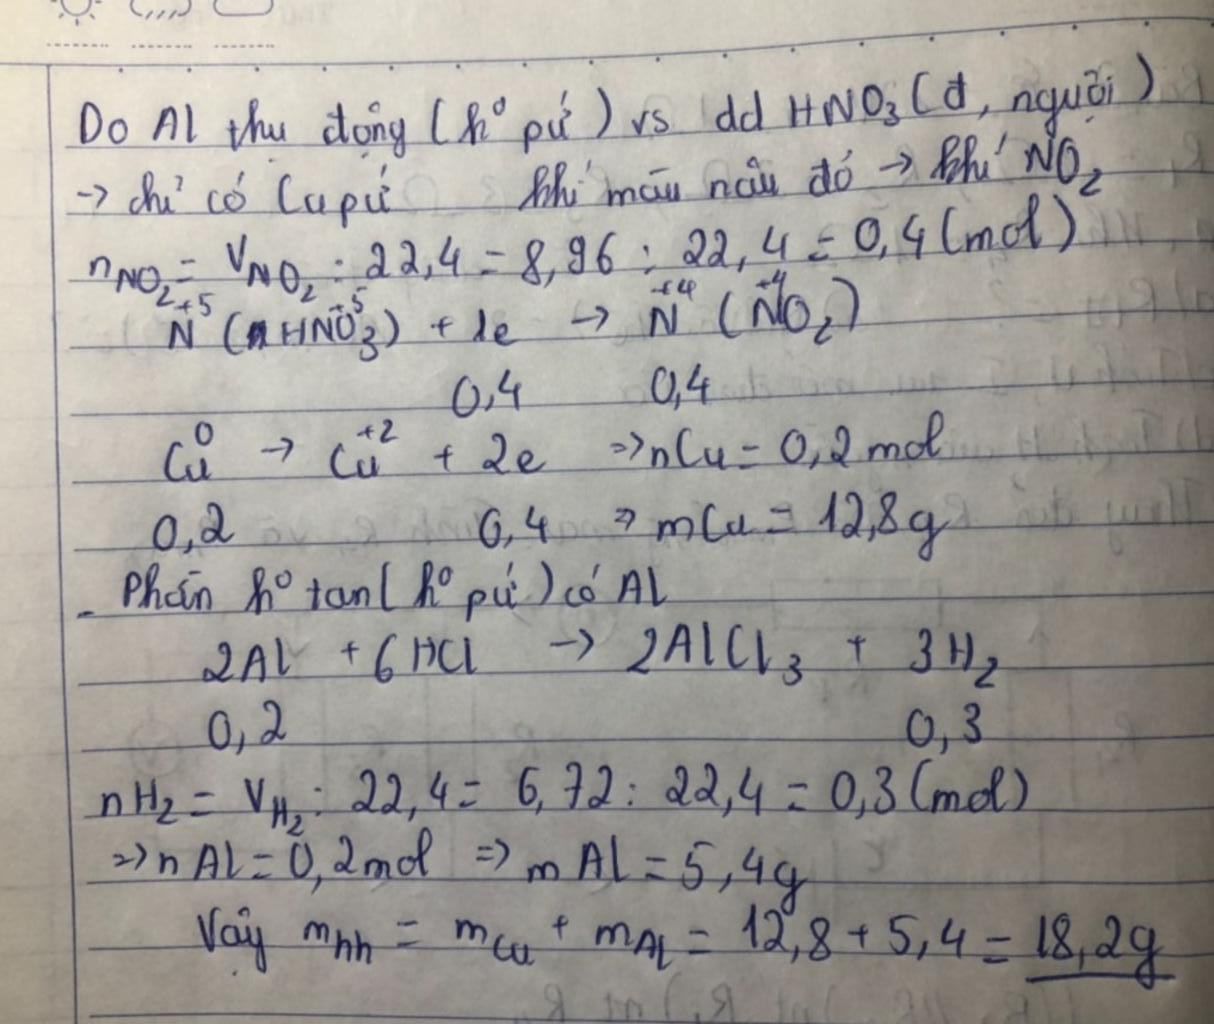 Do Al thụ động (ko pứ) vs dd HNO₃ (đ, nguội)
→ chỉ có Cu pứ khí màu nâu đỏ → khí NO₂
nNO₂ = VNO₂ : 22,4 = 8,96 : 22,4 = 0,4 (mol)
N⁺⁵ (HN⁺⁵O₃) + 1e → N⁺⁴ (N⁺⁴O₂)
0,4 0,4
Cu⁰ → Cu⁺² + 2e ⇒ nCu = 0,2 mol
0,2 0,4 ⇒ mCu = 12,8g
- Phần ko tan (ko pứ) có Al
2Al + 6HCl → 2AlCl₃ + 3H₂
0,2 0,3
nH₂ = VH₂ : 22,4 = 6,72 : 22,4 = 0,3 (mol)
⇒ nAl = 0,2 mol ⇒ mAl = 5,4g
Vậy mhh = mCu + mAl = 12,8 + 5,4 = 18,2g